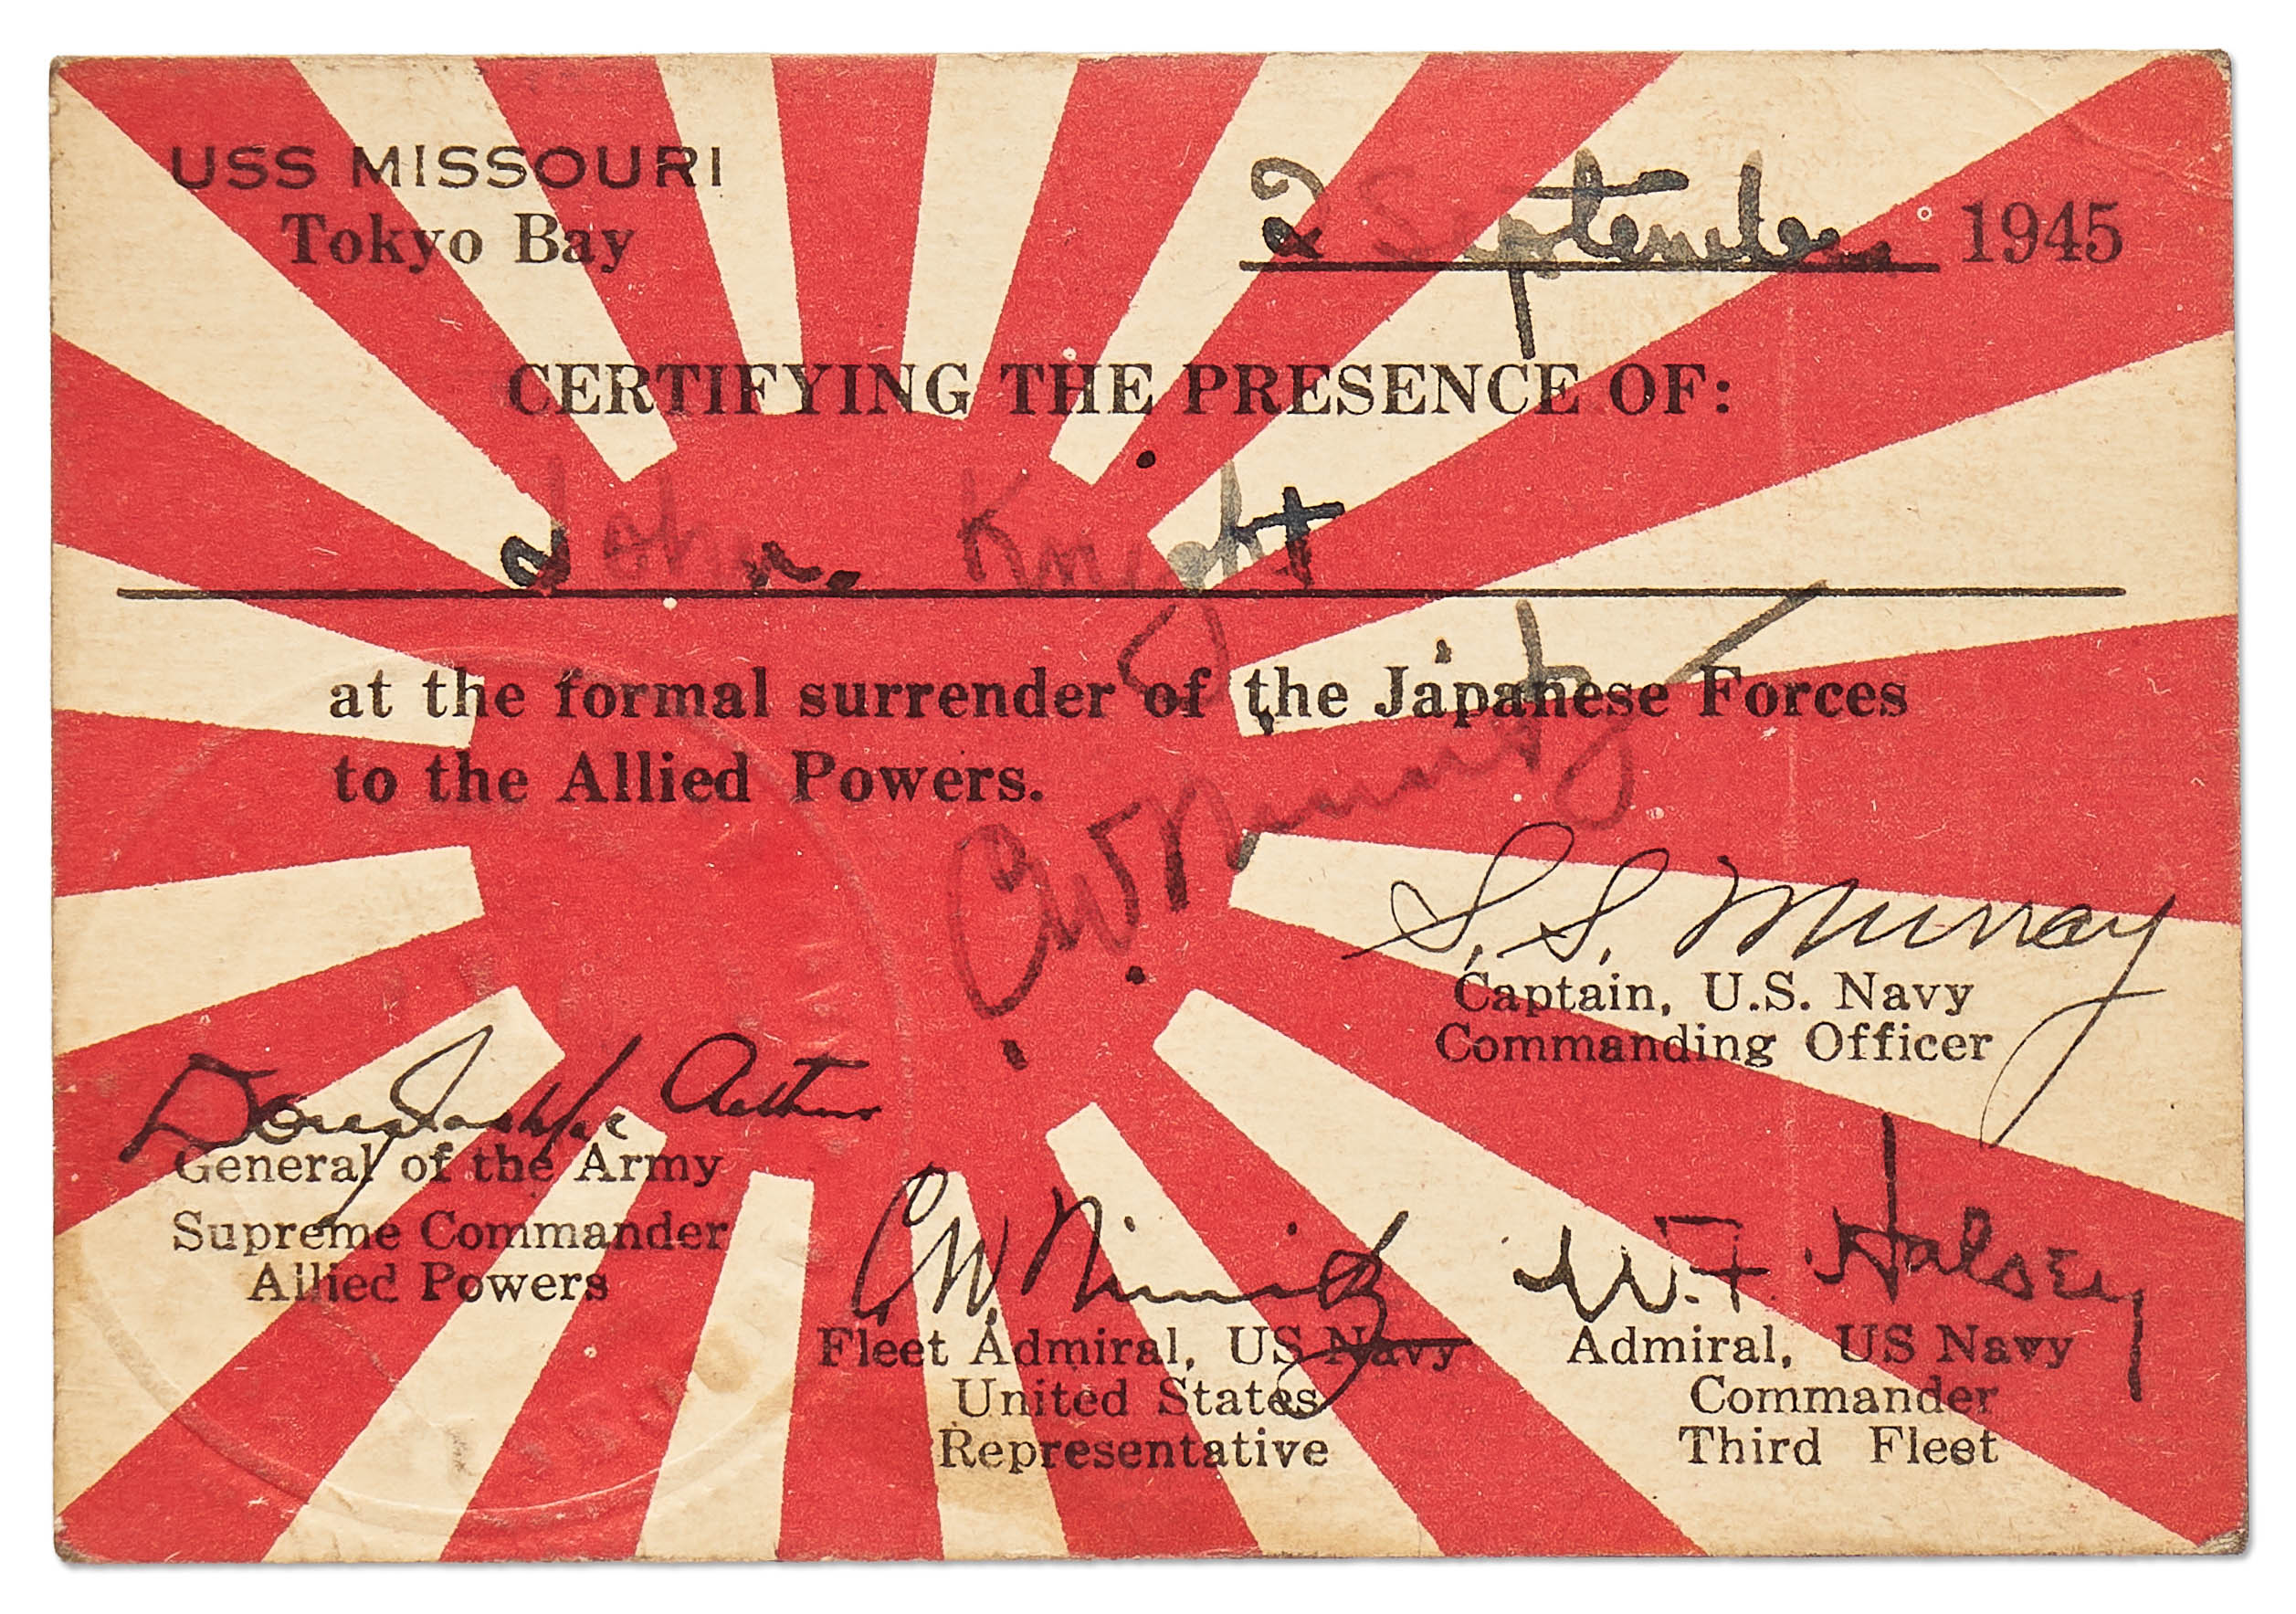 USS MISSOURI
Tokyo Bay
2 September 1945
CERTIFYING THE PRESENCE OF:
John Knight
at the formal surrender of the Japanese Forces
to the Allied Powers.
C W Nimitz
S. S. Murray
Captain, U.S. Navy
Commanding Officer
Douglas MacArthur
General of the Army
Supreme Commander
Allied Powers
C. W. Nimitz
Fleet Admiral, US Navy
United States
Representative
W. F. Halsey
Admiral, US Navy
Commander
Third Fleet